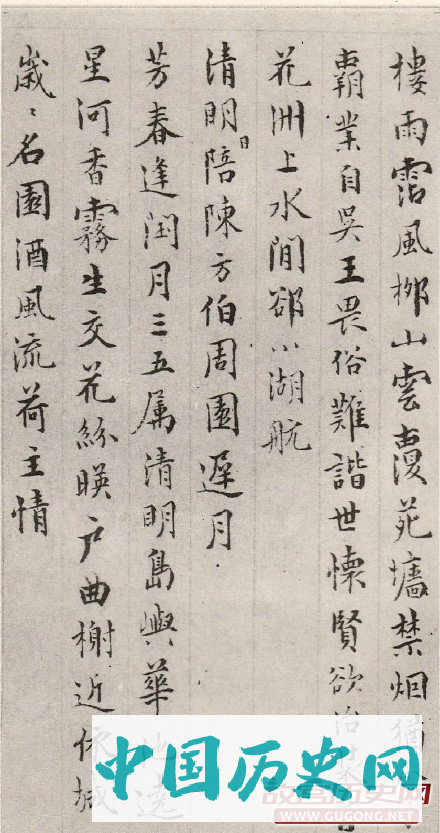 樓雨霑風栁山雲覆苑墻禁烟猶
覇業自吳王畏俗難諧世懐賢欲
花洲上水閒郤小湖航
清明日陪陳方伯周園遲月
芳春逢閏月三五属清明島嶼華池遶
星河香霧生交花絲暎户曲榭近依城
嵗〻名園酒風流荷主情
中国历史网
故宫历史网
WWW.GUGONG.NET